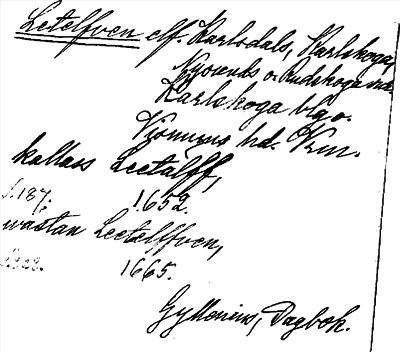 Letelfven elf. Karlsdals, Karlskoga,
Nysunds o. Rudskoga snr.
Karlskoga blgo.
Visnums hd. Vrm.
kallass Leetälff,
s. 187; 1652.
wästan Leetelffven,
1665.
Gyllenius, Dagbok.